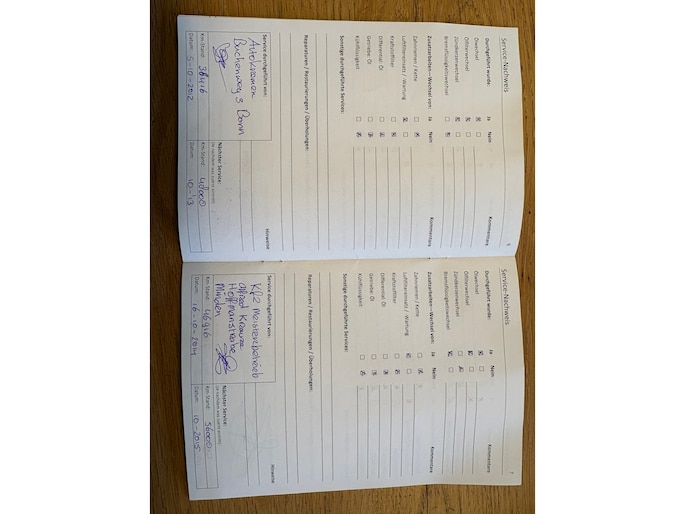 Service-Nachweis
Durchgeführt wurde: Ja Nein Kommentare
Ölwechsel
Ölfilterwechsel
Zündkerzenwechsel
Bremsflüssigkeitswechsel
Zusatzarbeiten – Wechsel von: Ja Nein Kommentare
Zahnriemen / Kette
Luftfiltereinsatz / Wartung
Kraftstofffilter
Differential: Öl
Getriebe: Öl
Kühlflüssigkeit
Sonstige durchgeführte Services:
Reparaturen / Restaurierungen / Überholungen:
Service durchgeführt von:
Buchenweg 3 Bonn
Km-Stand: 38416
Datum: 5-10-2012
Hinweise
Nächster Service:
(je nachdem was zuerst eintritt)
Km-Stand: 48000
Datum: 10-'13
6
Service-Nachweis
Durchgeführt wurde: Ja Nein Kommentare
Ölwechsel
Ölfilterwechsel
Zündkerzenwechsel
Bremsflüssigkeitswechsel
Zusatzarbeiten – Wechsel von: Ja Nein Kommentare
Zahnriemen / Kette
Luftfiltereinsatz / Wartung
Kraftstofffilter
Differential: Öl
Getriebe: Öl
Kühlflüssigkeit
Sonstige durchgeführte Services:
Reparaturen / Restaurierungen / Überholungen:
Service durchgeführt von:
Kfz Meisterbetrieb
Alfred Krause
Hoffmanstraße
Minden
Km-Stand: 46916
Datum: 16-10-2014
Hinweise
Nächster Service:
(je nachdem was zuerst eintritt)
Km-Stand: 56000
Datum: 10-2015
7